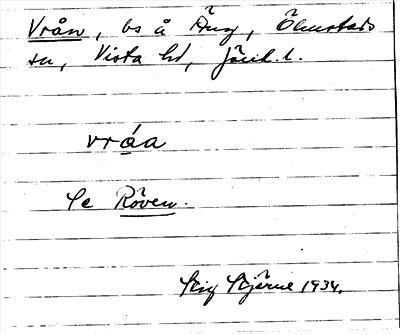 Vrån, bs å Äng, Ölmstads
sn, Vista hd, Jönk. l.
vråa
Se Röven.
Stig Stjärne 1934.